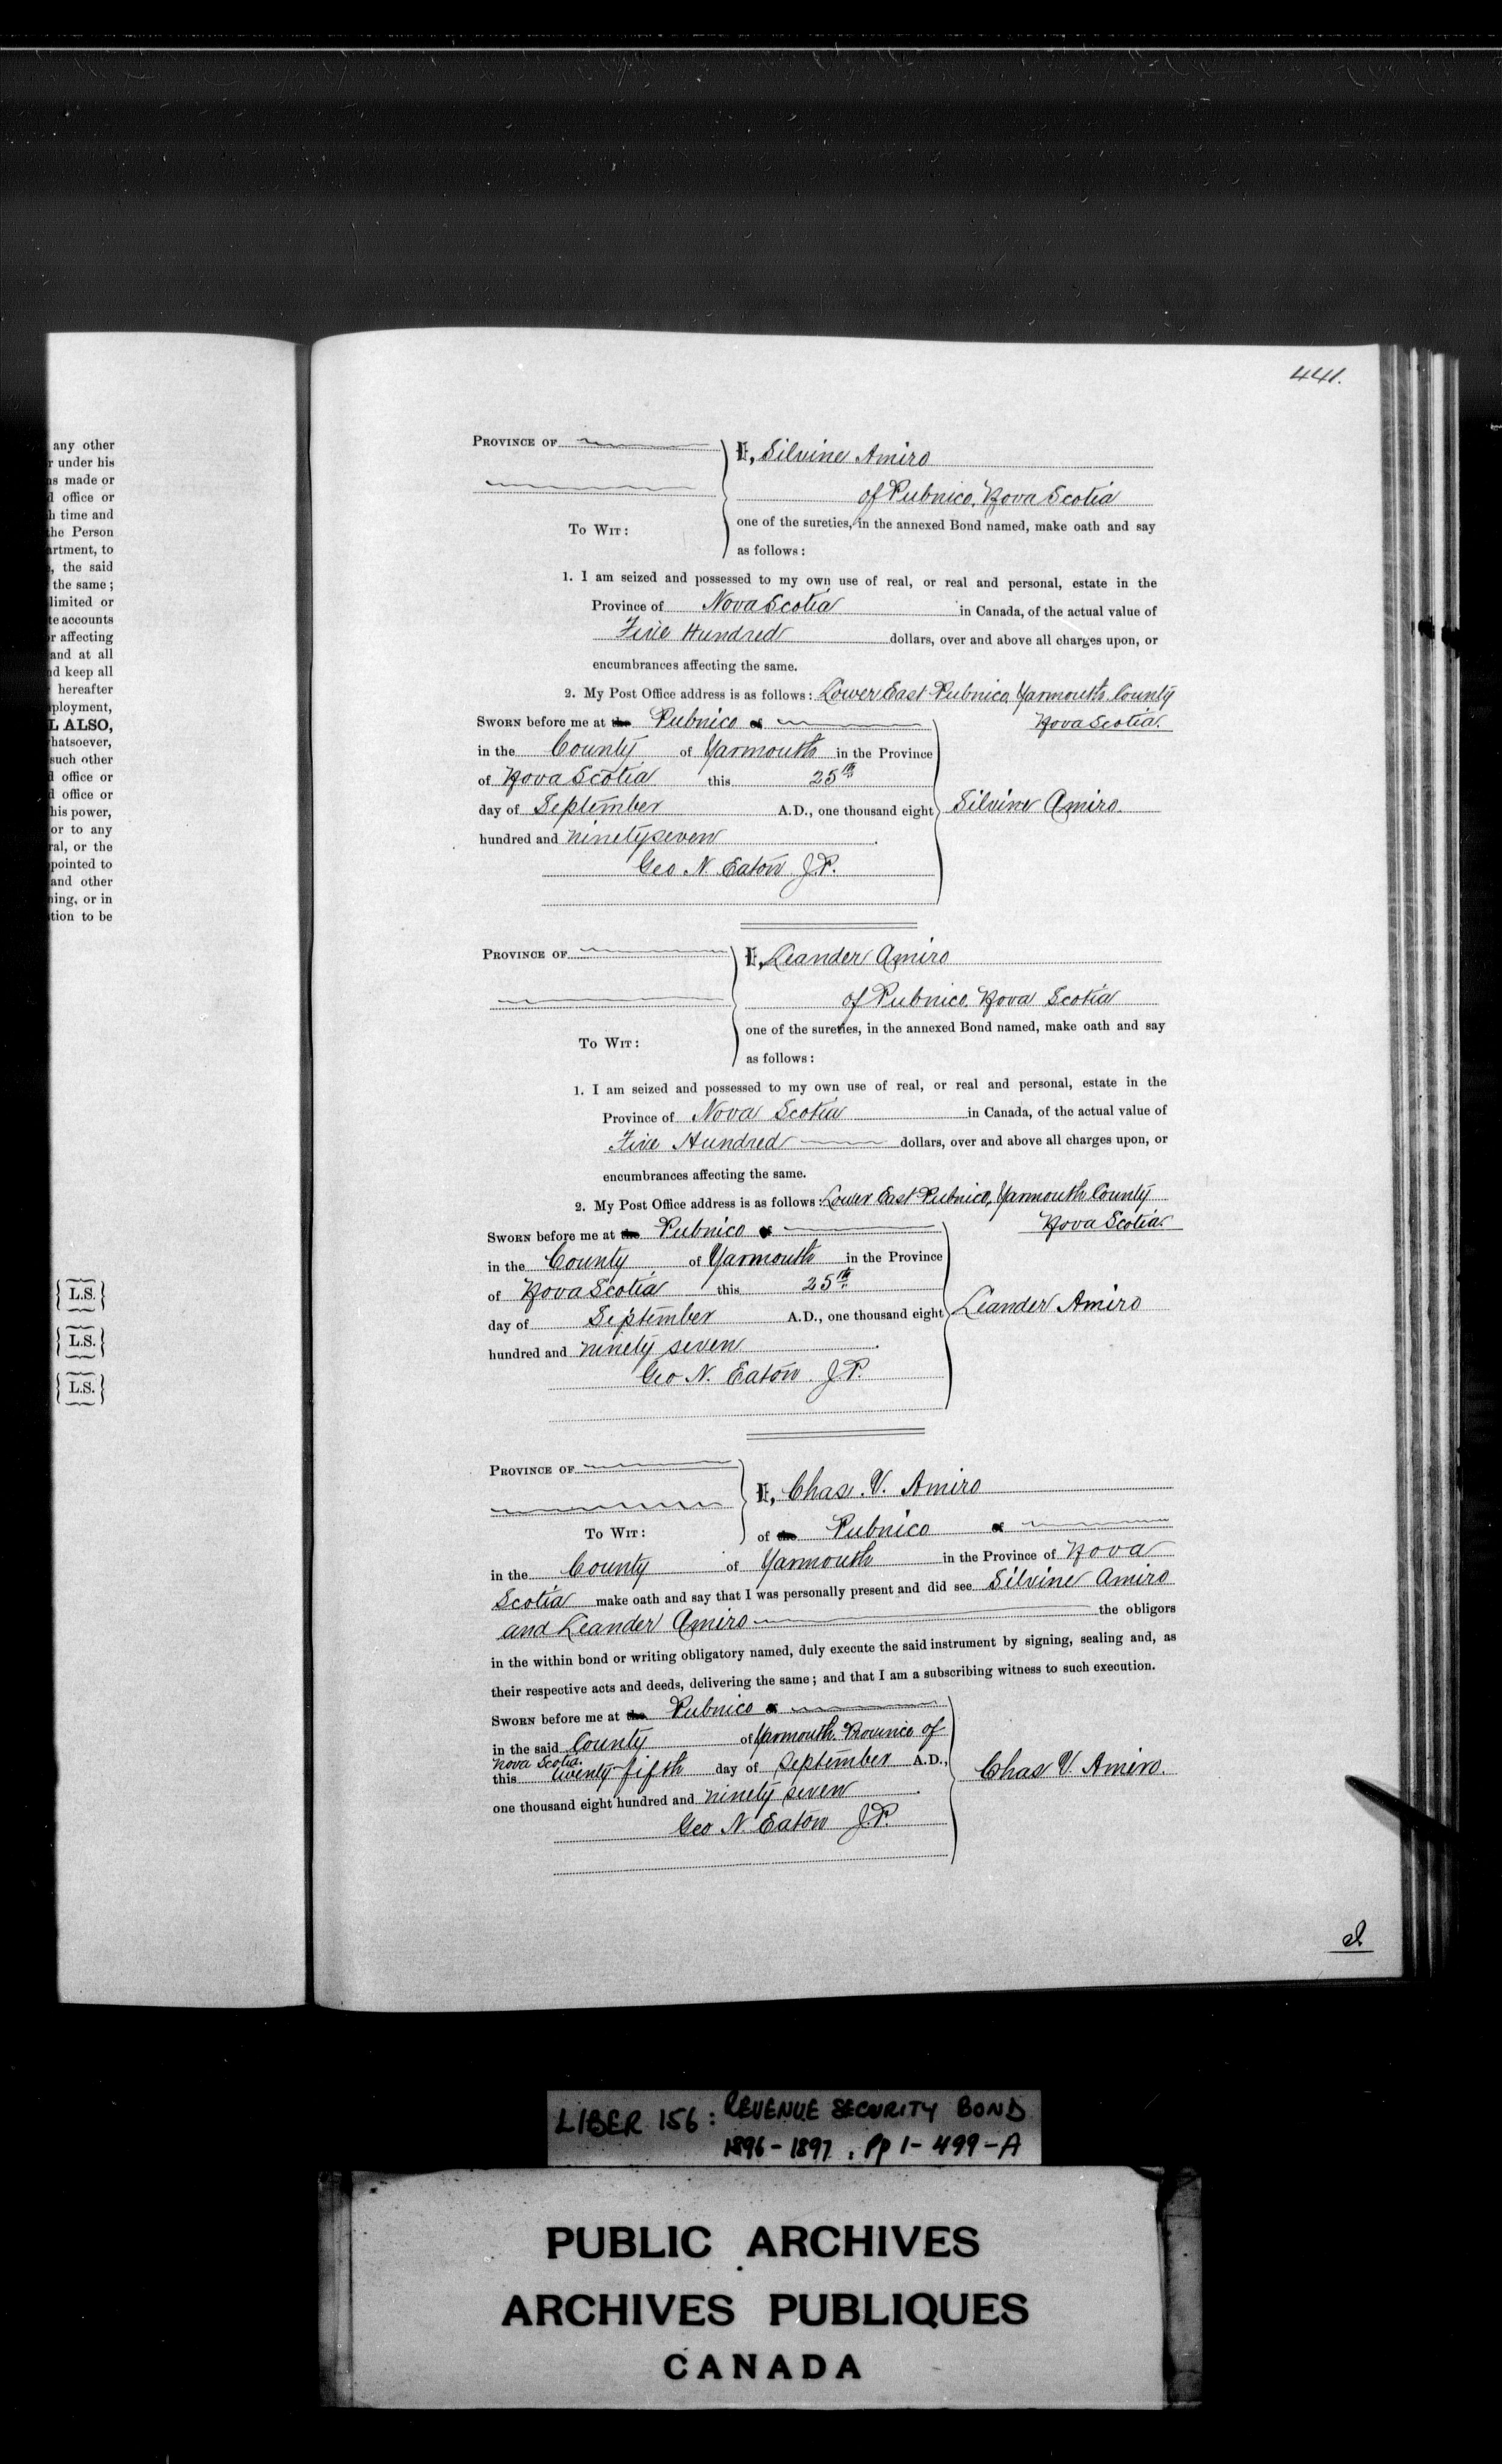 441.
any other
r under his
as made or
d office or
h time and
the Person
artment, to
, the said
the same ;
limited or
te accounts
r affecting
and at all
nd keep all
hereafter
ployment,
L ALSO,
hatsoever,
such other
d office or
d office or
his power,
or to any
ral, or the
pointed to
and other
ning, or in
tion to be
{ L.S. }
{ L.S. }
{ L.S. }
PROVINCE OF
I, Silvine Amiro
of Pubnico, Nova Scotia
TO WIT :
one of the sureties, in the annexed Bond named, make oath and say
as follows :
1. I am seized and possessed to my own use of real, or real and personal, estate in the
Province of Nova Scotia in Canada, of the actual value of
Five Hundred dollars, over and above all charges upon, or
encumbrances affecting the same.
2. My Post Office address is as follows : Lower East Pubnico, Yarmouth County
Nova Scotia.
SWORN before me at the Pubnico of
in the County of Yarmouth in the Province
of Nova Scotia this 25th
day of September A.D., one thousand eight
Silvine Amiro.
hundred and ninety seven.
Geo N. Eaton J.P.
PROVINCE OF
I, Leander Amiro
of Pubnico, Nova Scotia
TO WIT :
one of the sureties, in the annexed Bond named, make oath and say
as follows :
1. I am seized and possessed to my own use of real, or real and personal, estate in the
Province of Nova Scotia in Canada, of the actual value of
Five Hundred dollars, over and above all charges upon, or
encumbrances affecting the same.
2. My Post Office address is as follows : Lower East Pubnico, Yarmouth County
Nova Scotia.
SWORN before me at the Pubnico of
in the County of Yarmouth in the Province
of Nova Scotia this 25th
day of September A.D., one thousand eight
Leander Amiro
hundred and ninety seven.
Geo N. Eaton J.P.
PROVINCE OF
I, Chas. V. Amiro
TO WIT :
of the Pubnico of
in the County of Yarmouth in the Province of Nova
Scotia make oath and say that I was personally present and did see Silvine Amiro
and Leander Amiro the obligors
in the within bond or writing obligatory named, duly execute the said instrument by signing, sealing and, as
their respective acts and deeds, delivering the same ; and that I am a subscribing witness to such execution.
SWORN before me at the Pubnico of
in the said County of Yarmouth, Province of
Nova Scotia.
this twenty fifth day of September A.D.,
Chas V. Amiro.
one thousand eight hundred and ninety seven.
Geo N. Eaton J.P.
LIBER 156 : REVENUE SECURITY BOND
1896 - 1897 , Pp 1 - 499 - A
PUBLIC ARCHIVES
ARCHIVES PUBLIQUES
CANADA